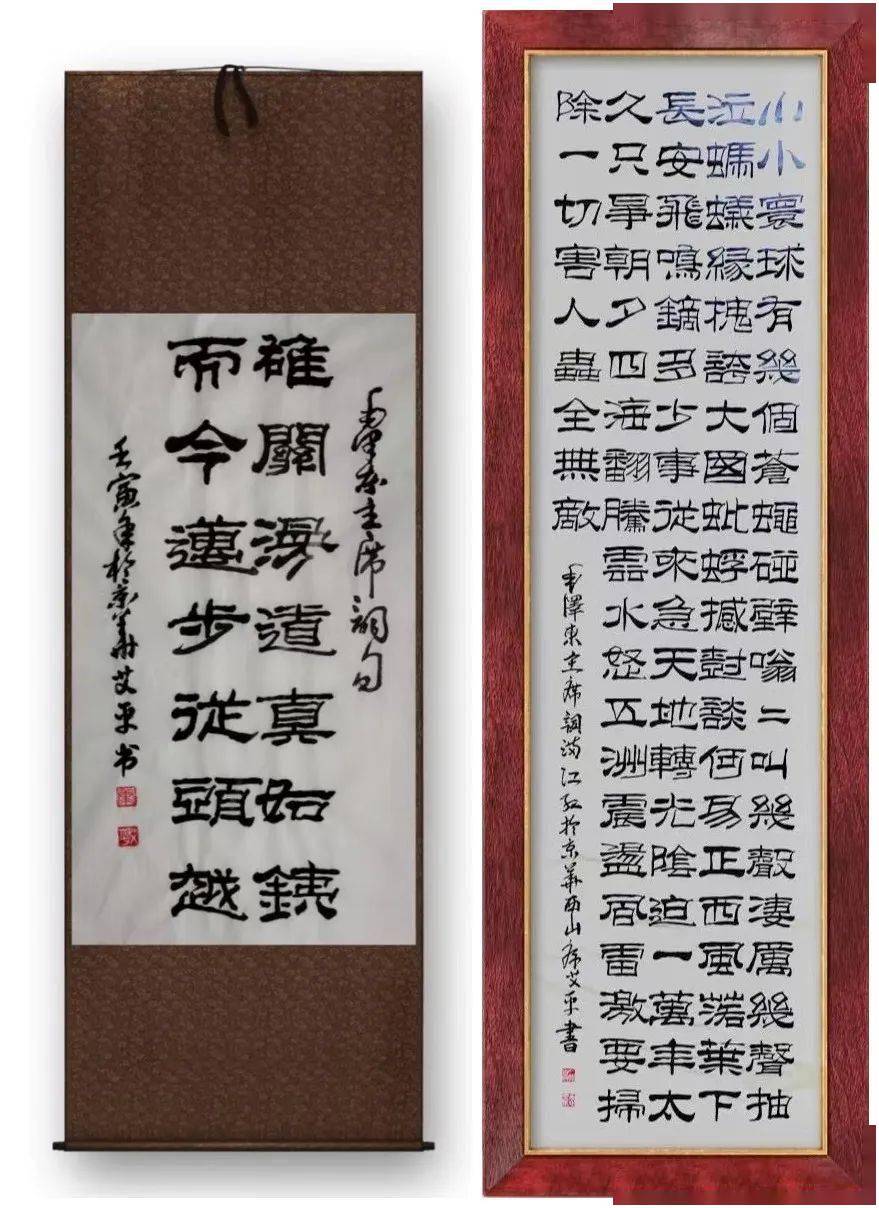 毛泽东主席詞句
雄關漫道真如鐵
而今邁步從頭越
壬寅年於京華艾平书
小小寰球有幾個蒼蠅碰壁嗡二叫幾聲淒厲幾聲抽
泣螞蟻緣槐誇大國蚍蜉撼樹談何易正西風落葉下
長安飛鳴鏑多少事從來急天地轉光陰迫一萬年太
久只爭朝夕四海翻騰雲水怒五洲震盪風雷激要掃
除一切害人蟲全無敵
毛澤東主席詞满江红於京華西山艾平書